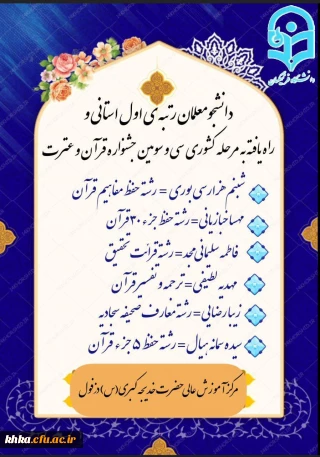 دانشگاه فرهنگیان
دانشجو معلمان رتبه‌ی اول استانی و
راه یافته به مرحله کشوری سی و سومین جشنواره قرآن و عترت
شبنم هزارسی بوری = رشته حفظ مفاهیم قرآن
مهسا خبازیانی = رشته حفظ جزء ۳۰ قرآن
فاطمه سلیمانی مجد = رشته قرائت تحقیق
مهدیه لطیفی = ترجمه و تفسیر قرآن
زیبا رضایی = رشته معارف صحیفه سجادیه
سیده سمانه بیال = رشته حفظ ۵ جزء قرآن
مرکز آموزش عالی حضرت خدیجه کبری (س) دزفول
khka.cfu.ac.ir